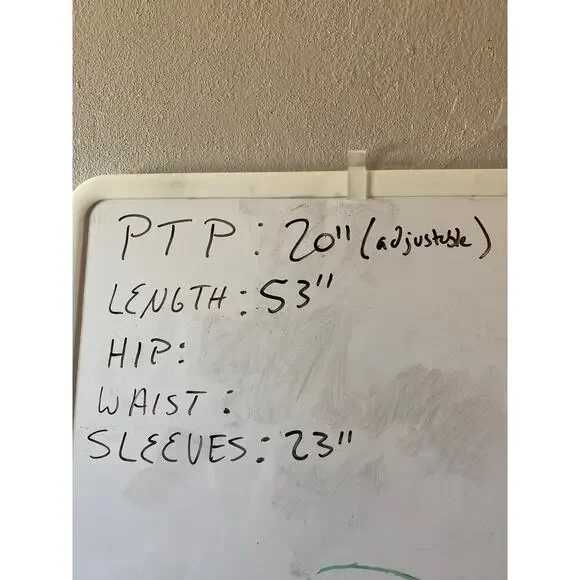 PTP: 20" (adjustable)
LENGTH: 53"
HIP:
WAIST:
SLEEVES: 23"